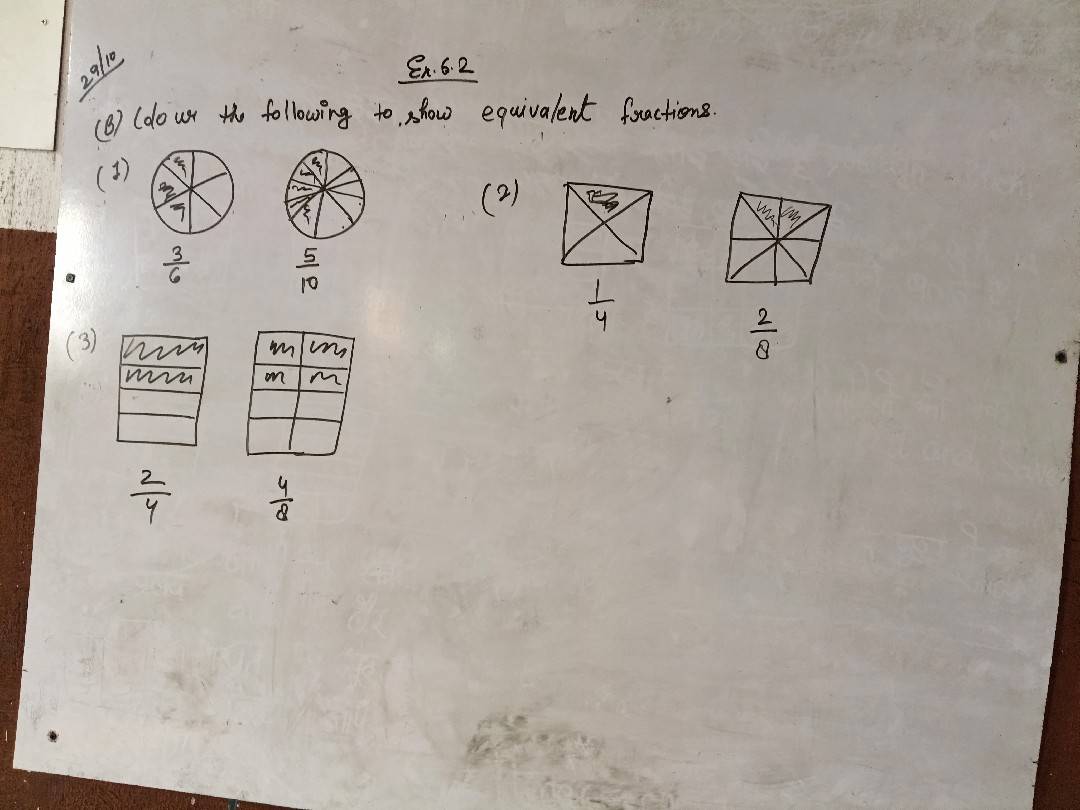 29/10
Ex. 6.2
(B) Colour the following to show equivalent fractions.
(1)
3/6
5/10
(2)
1/4
2/8
(3)
2/4
4/8